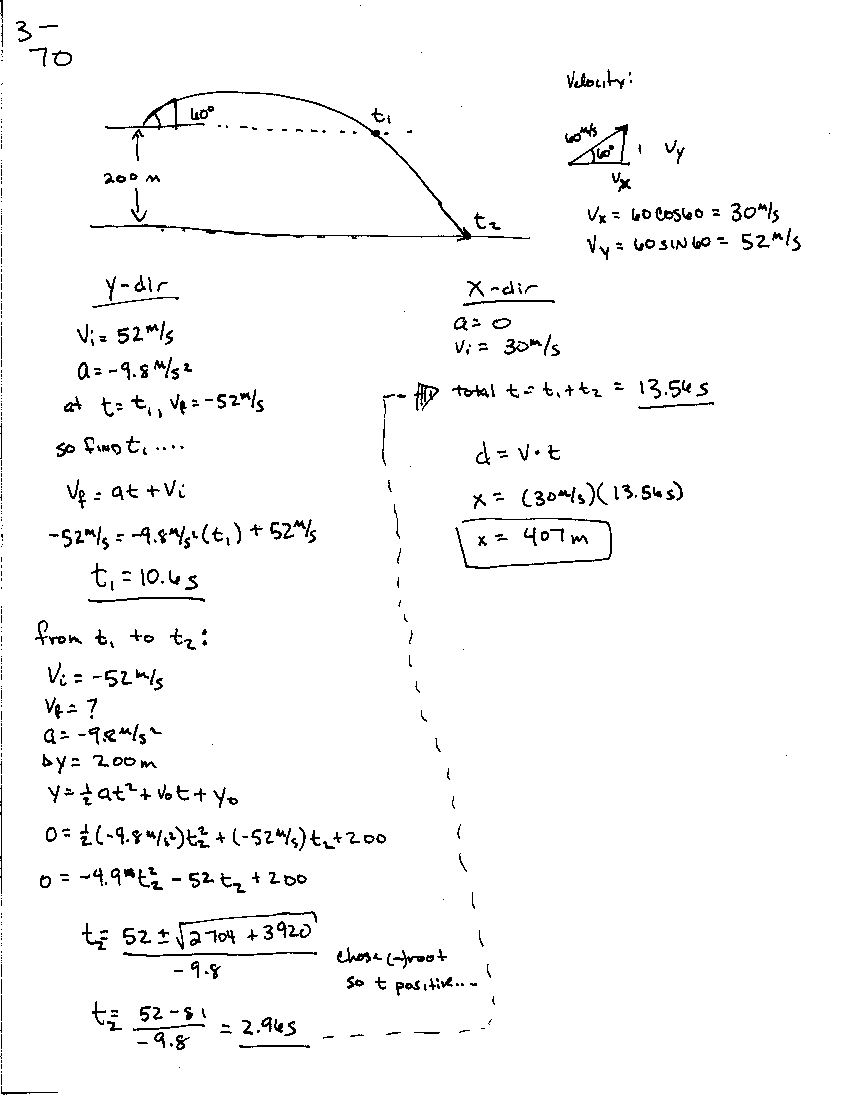 3-
70
60°
t₁
200 m
t₂
Velocity:
60 m/s
60°
Vy
Vx
Vx = 60 cos 60 = 30 m/s
Vy = 60 sin 60 = 52 m/s
Y-dir
Vi = 52 m/s
a = -9.8 m/s²
at t = t₁, Vf = -52 m/s
so find t₁ ....
Vf = at + Vi
-52 m/s = -9.8 m/s² (t₁) + 52 m/s
t₁ = 10.6 s
from t₁ to t₂:
Vi = -52 m/s
Vf = ?
a = -9.8 m/s²
Δy = 200 m
y = ½at² + v₀t + y₀
0 = ½(-9.8 m/s²)t₂² + (-52 m/s)t₂ + 200
0 = -4.9 m t₂² - 52 t₂ + 200
t₂ = 52 ± √2704 + 3920
-9.8
chose (-)root
so t positive...
t₂ = 52 - 81
-9.8
= 2.96 s
X-dir
a = 0
Vi = 30 m/s
total t = t₁ + t₂ = 13.56 s
d = v · t
x = (30 m/s)(13.56 s)
x = 407 m